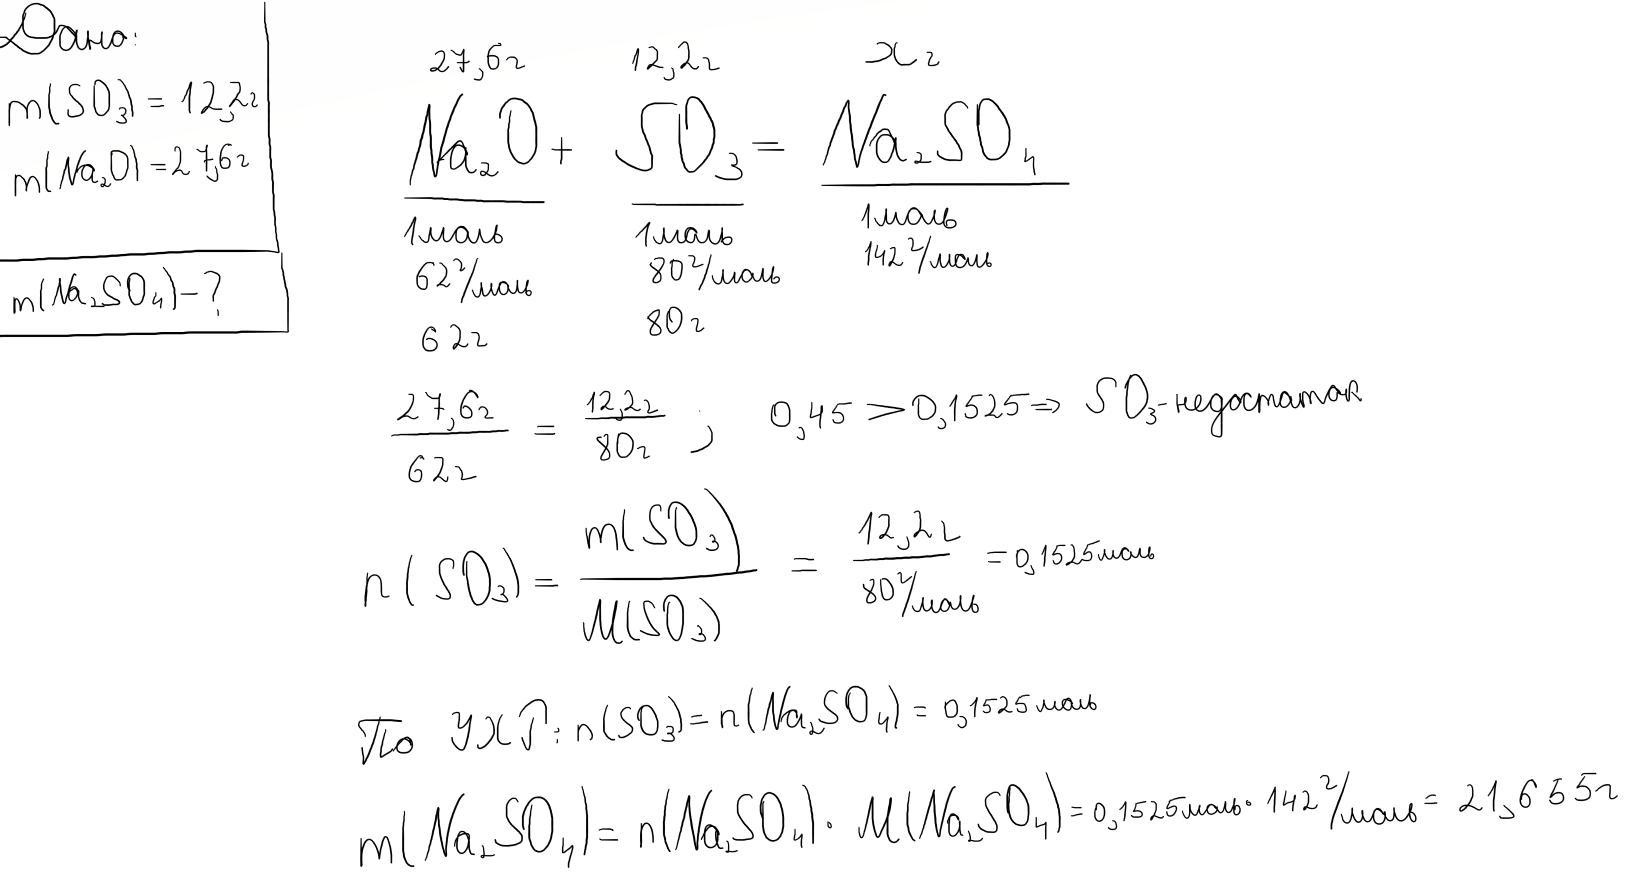 Дано:
m(SO₃) = 12,2г
m(Na₂O) = 27,6г
m(Na₂SO₄) – ?
27,6г 12,2г x г
Na₂O + SO₃ = Na₂SO₄
1моль 1моль 1моль
62г/моль 80г/моль 142г/моль
62г 80г
27,6г/62г = 12,2г/80г ; 0,45 > 0,1525 ⇒ SO₃-недостаток
n(SO₃) = m(SO₃)/M(SO₃) = 12,2г/80г/моль = 0,1525моль
По УХР: n(SO₃) = n(Na₂SO₄) = 0,1525моль
m(Na₂SO₄) = n(Na₂SO₄) · M(Na₂SO₄) = 0,1525моль · 142г/моль = 21,655г